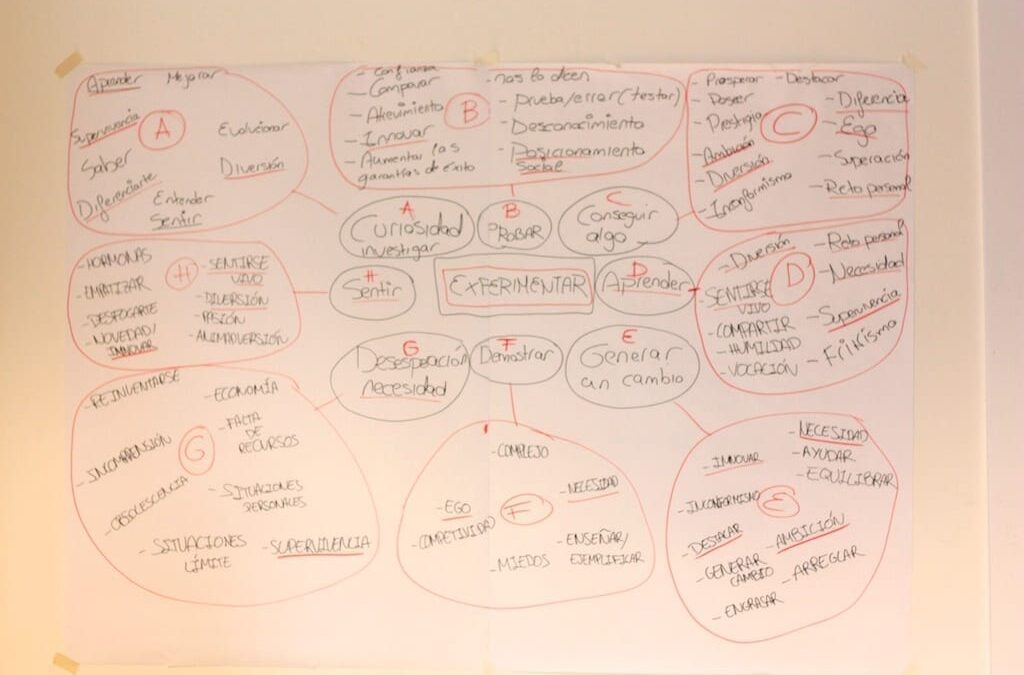 Aprender
Mejorar
Supervivencia
A
Evolucionar
Saber
Diversión
Diferenciarte
Entender
Sentir
- Confianza
- Comparar
- Atrevimiento
- Innovar
- Aumentar las
garantías de éxito
B
- nos lo dicen
- Prueba/error (testar)
- Desconocimiento
- Posicionamiento
social
- Prosperar
- Destacar
- Poseer
- Prestigio
- Ambición
- Diversión
- Inconformismo
C
- Diferencia
- Ego
- Superación
- Reto personal
A
Curiosidad
investigar
B
PROBAR
C
Conseguir
algo
- HORMONAS
- EMPATIZAR
- DESFOGARTE
- NOVEDAD/
INNOVAR
H
- SENTIRSE
VIVO
- DIVERSIÓN
- PASIÓN
- ANIMADVERSIÓN
H
Sentir
EXPERIMENTAR
D
Aprender
- Diversión
- SENTIRSE
VIVO
- COMPARTIR
- HUMILIDAD
- VOCACIÓN
D
- Reto personal
- Necesidad
- Supervivencia
- Frikismo
G
Desesperación
necesidad
F
Demostrar
E
Generar
un cambio
- REINVENTARSE
- ECONOMÍA
- INCOMPRENSIÓN
G
- FALTA
DE
RECURSOS
- OBSOLESCENCIA
- SITUACIONES
PERSONALES
- SITUACIONES
LÍMITE
- SUPERVIVENCIA
- COMPLEJO
- EGO
- COMPETIVIDAD
F
- NECESIDAD
- ENSEÑAR/
EJEMPLIFICAR
- MIEDOS
- NECESIDAD
- INNOVAR
- AYUDAR
- EQUILIBRAR
- INCONFORMISMO
E
- DESTACAR
- AMBICIÓN
- GENERAR
CAMBIO
- ARREGLAR
- ENGRASAR